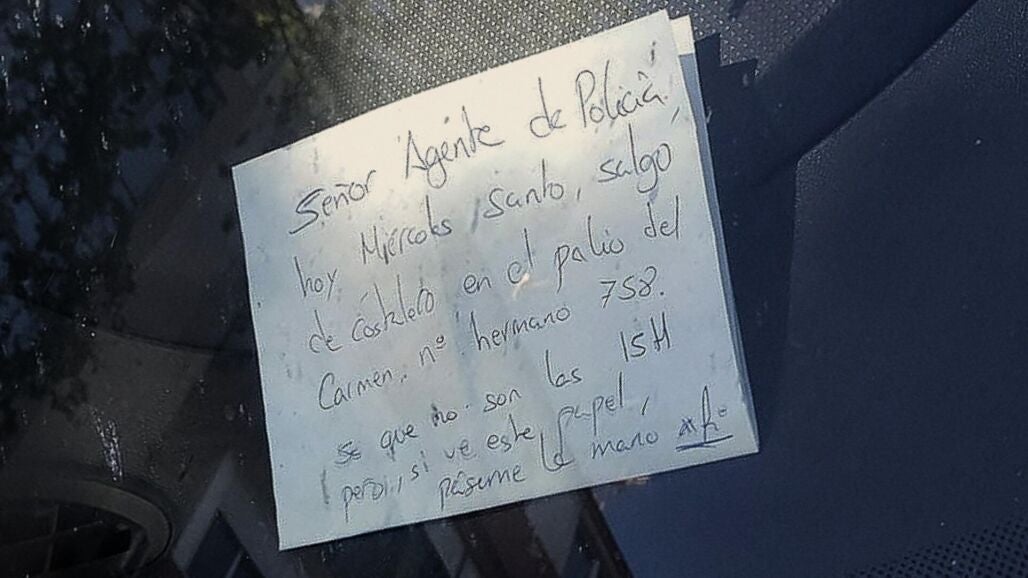 Señor Agente de Policía,
hoy Miércoles Santo, salgo
de costalero en el palio del
Carmen, nº hermano 758.
se que no son las 15H
pero, si ve este papel,
páseme la mano